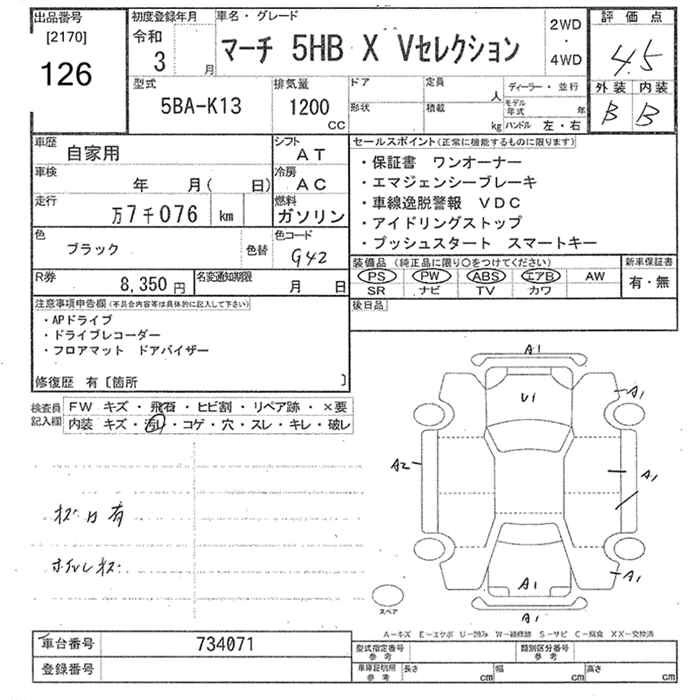 出品番号
[2170]
126
初度登録年月
令和
3 月
車名・グレード
マーチ 5HB X Vセレクション
2WD
・
4WD
評価点
4.5
外装 内装
B B
型式
5BA-K13
排気量
1200
CC
ドア
形状
定員
人
積載
kg
ディーラー・並行
モデル年式 年
ハンドル 左・右
車歴 自家用
シフト AT
車検 年 月( 日)
冷房 AC
走行 万7千076 km
燃料 ガソリン
色 ブラック 色替
色コード G42
R券 8,350円
名変通知期限 月 日
セールスポイント(正常に機能するものに限ります)
・保証書 ワンオーナー
・エマジェンシーブレーキ
・車線逸脱警報 VDC
・アイドリングストップ
・プッシュスタート スマートキー
装備品(純正品に限り○をつけてください)
PS PW ABS エアB AW
SR ナビ TV カワ
新車保証書
有・無
後日品
注意事項申告欄(不具合内容等は具体的に記入して下さい)
・APドライブ
・ドライブレコーダー
・フロアマット ドアバイザー
修復歴 有〔箇所 〕
検査員記入欄
FW キズ・飛石・ヒビ割・リペア跡・×要
内装 キズ・汚レ・コゲ・穴・スレ・キレ・破レ
A1
U1
A1
A2
A1
A1
A1
A1
スペア
A-キズ E-エクボ U-凹み W-補修跡 S-サビ C-腐食 XX-交換済
車台番号 734071
登録番号
型式指定番号 参考
類別区分番号 参考
車庫証明用 参考
長さ cm
幅 cm
高さ cm